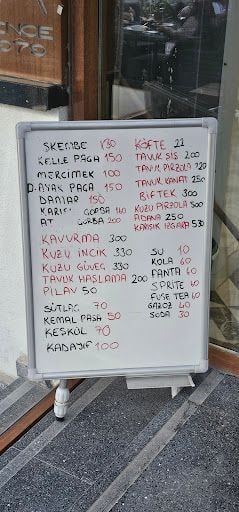 ENCE
1970
SKEMBE 130
KELLE PAÇA 150
MERCIMEK 100
D.AYAK PAÇA 150
DAMAR 150
KARIŞI ÇORBA 140
AT ÇORBA 200
KAVURMA 300
KUZU İNCİK 330
KUZU GÜVEÇ 330
TAVUK HASLAMA 200
PILAV 50
SÜTLAÇ 70
KEMAL PAŞA 50
KEŞKÜL 70
KADAYIF 100
KÖFTE 22
TAVUK SIS 200
TAVUK PIRZOLA 220
TAVUK KANAT 250
BIFTEK 300
KUZU PIRZOLA 500
ADANA 250
KARISIK IZGARA 530
SU 10
KOLA 60
FANTA 60
SPRITE 60
FUSE TEA 60
GAZOZ 40
SODA 30